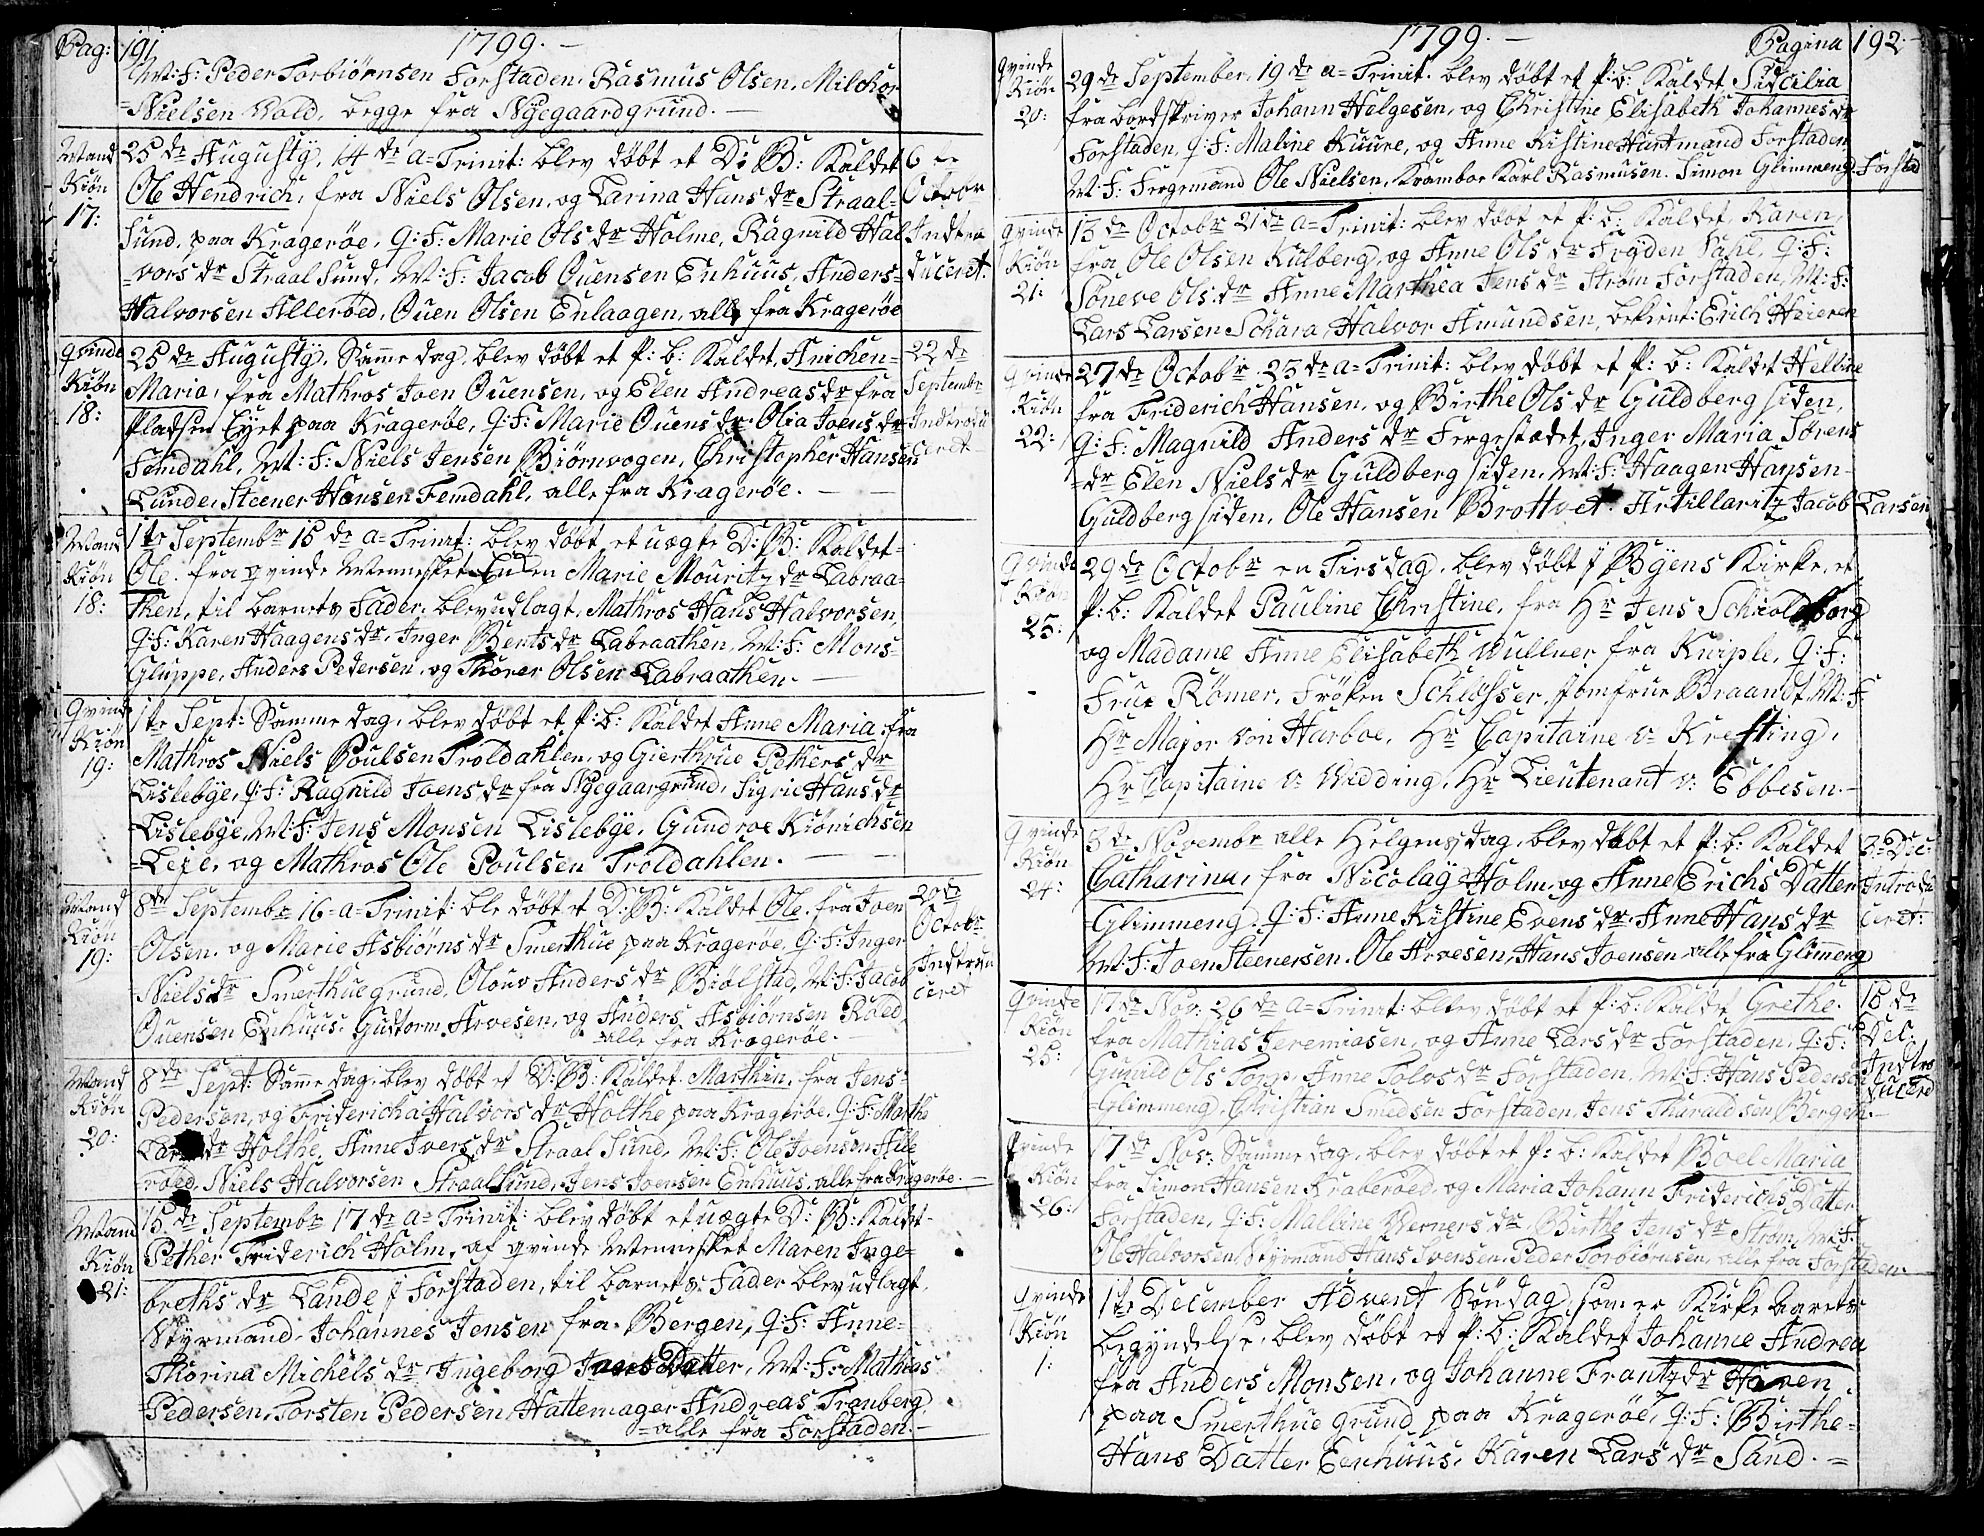 Pag: 191 1799.
M: F: Peder Torbiørnsen Forstaden. Rasmus Olsen, Milchor
Nielsen Wold, begge fra Nÿegaardgrund.
Mand Kiøn 17:
25de Augustÿ, 14de a= Trinit: blev døbt et D: B: Kaldet
Ole Hendrich, fra Niels Olsen, og Larina Hans dr Straal=
Sund, paa Kragerøe, Q: F: Marie Ols dr Holme, Ragnild Hal
=vors dr Straal Sund, M: F: Jacob Ouensen Enhuus, Anders=
Halvorsen Allerøed, Ouen Olsen Enlaagen, alle fra Kragerøe
6te Octobr Indtro duceret.
Qvinde Kiøn 18:
25de Augustÿ, Samme dag, blev døbt et p: b: Kaldet, Anichen=
Maria, fra Mathros Joen Ouensen, og Elen Andreas dr fra
Pladsen Eÿet paa Kragerøe, Q: F: Marie Ouens dr Olia Joens dr
Femdahl, M: F: Niels Jensen Biørnvogen, Christopher Hansen
Lunde, Steener Hansen Femdahl, alle fra Kragerøe.
22de Septembr Indtrodu ceret
Mand Kiøn 18:
1te Septembr 15de a= Trinit: blev døbt et uægte D: B: Kaldet=
Ole. fra qvinde Mennesket Marie Mouritz dr Labraa=
then, til barnets Fader, blev udlagt, Mathros Hans Halvorsen,
Q: F: Karen Haagens dr, Inger Bents dr Labraathen, M: F: Mons=
Gluppe, Anders Pedersen, og Thorer Olsen Labraathen.
Qvinde Kiøn 19:
1te Sept: Samme dag, blev døbt et p: b: Kaldet Anne Maria, fra
Mathros Niels Poulsen Troldahlen, og Gierthrue Pethers dr
Lislebÿe, Q: F: Ragnild Joens dr fra Nÿegaargrund, Sigrie Hans dr
Lislebÿe, M: F: Jens Monsen Lislebÿe, Gundroe Kiønichsen
=Leye, og Mathros Ole Poulsen Troldahlen.
Mand Kiøn 19:
8de Septembr 16= a= Trinit: ble døbt et D: B: Kaldet Ole. fra Joen
Olsen. og Marie Asbiørns dr Smerthue paa Kragerøe, Q: F: Inger
Niels dr Smerthuegrund, Olouv Anders dr Biølstad, M: F: Jacob
Ouensen Enhuus, Gudtorm Arvesen, og Anders Asbiørnsen Røed,
alle fra Kragerøe.
20de Octobr Indtrdu ceret
Mand Kiøn 20:
8de Sept: Samme dag, blev døbt et D: B: Kaldet. Marthin, fra Jens=
Pedersen, og Fridericha Halvors dr Holthe paa Kragerøe, Q: F: Marthe
Lars dr Holthe, Anne Ivers dr Straal Sund, M: F: Ole Joensen Alle
røed, Niels Halvorsen Straal Sund, Jens Joensen Enhuus, alle fra Kragerøe.
Mand Kiøn 21:
15de Septembr 17de a= Trinit: blev døbt et uægte D: B: Kaldet=
Pether Friderich Holm, af qvinde Mennesket Maren Inge=
breths dr Lande j Forstaden, til barnets Fader blev udlagt
Stÿrmand Johannes Jensen fra Bergen, Q: F: Anne=
Thorina Michels dr Ingeborg Datter, M: F: Mathias
Pedersen, Torsten Pedersen, Hattemager Andreas Tronberg
=alle fra Forstaden.
1799. Pagina 192
Qvinde Kiøn 20:
29de September, 19de a= Trinit. blev døbt et p: b: Kaldet Sidcilia
fra bordskriver Johann Helgesen, og Christine Elisabeth Johannes dr
Forstaden, Q: F: Maline Kuure, og Anne Kistine Hartmand Forstaden
M: F: Fergemand Ole Nielsen, Kramboe Karl Rasmusen. Simon Glimmeng Forstad
Qvinde Kiøn 21:
13de Octobr 21de a= Trinit: blev døbt et p: b: Kaldet, Karen,
fra Ole Olsen Kulberg, og Anne Ols dr Frÿden Dahl, Q: F:
Søneve Ols dr Anne Marthea Jens dr Strøm Forstaden, M: F:
Lars Larsen Schara, Halvor Amundsen, Erich Heieren
Qvinde Kiøn 22:
27de Octobr 23de a= Trinit: blev døbt et p: b: Kaldet Helline
fra Friderich Hansen, og Birthe Ols dr Guldberg siden,
Q: F: Magnild Anders dr Fergestædet, Inger Maria Sørens
=dr Elen Niels dr Guldberg siden, M: F: Haagen Hansen=
Guldberg siden, Ole Hansen Brottvet. Artillaritz Jacob Larsen
Qvinde Kiøn 23:
29de Octobr en Tirsdag, blev døbt j Bÿens Kirke, et
p: b: Kaldet Pauline Christine, fra Hr Jens Schioldborg
og Madame Anne Elisabeth Wullner fra Kniple, Q: F:
Frue Römer, Frøken Schlösser, Jomfrue Braandt, M: F:
Hr Major von Harboe, Hr Capitaine v: Krefting,
Hr Capitaine v: Wedding, Hr Lieutenant v: Ebbesen.
Qvinde Kiøn 24:
3de Novembr alle Helgens dag, blev døbt et p: b: Kaldet
Catharina, fra Nicolaÿ Holm, og Anne Erichs Datter
Glimmeng. Q: F: Anne Kistine Evens dr Anne Hans dr
M: F: Joen Steenersen. Ole Arvesen, Hans Joensen alle fra Glimeng
3= Dec: Introdu ceret:
Qvinde Kiøn 25:
17de Nov: 26de a= Trinit: blev døbt et p: b: Kaldet Grethe.
fra Mathias Jeremiasen, og Anne Lars dr Forstaden, Q: F:
Gunild Ols Torp, Anne Tolvs dr Forstaden, M: F: Hans Pedersen
=Glimmeng, Christian Smedsen Forstaden, Jens Tharaldsen Bergen.
15de Dec: Indtro ducerd
Qvinde Kiøn 26:
17de Nov: Samme dag, blev døbt et p: b: Kaldet Boel Maria
fra Simon Hansen Kraberøed, og Maria Johann Friderichs Datter
Forstaden, Q: F: Mallene Werners dr, Birthe Jens dr Strøm, M: F:
Ole Halvorsen, Stÿrmand Hans Svensen, Peder Torbiørnsen, alle fra Forstaden
Qvinde Kiøn 1:
1te December Advent Søndag, som er Kirke Aarets
begÿndelse, blev døbt et p: b: Kaldet Johanne Andrea
fra Anders Monsen, og Johanne Frantz dr Haven
paa Smerthue grund paa Kragerøe, Q: F: Birthe=
Hans Datter Eenhuus, Karen Lars dr Sand.=